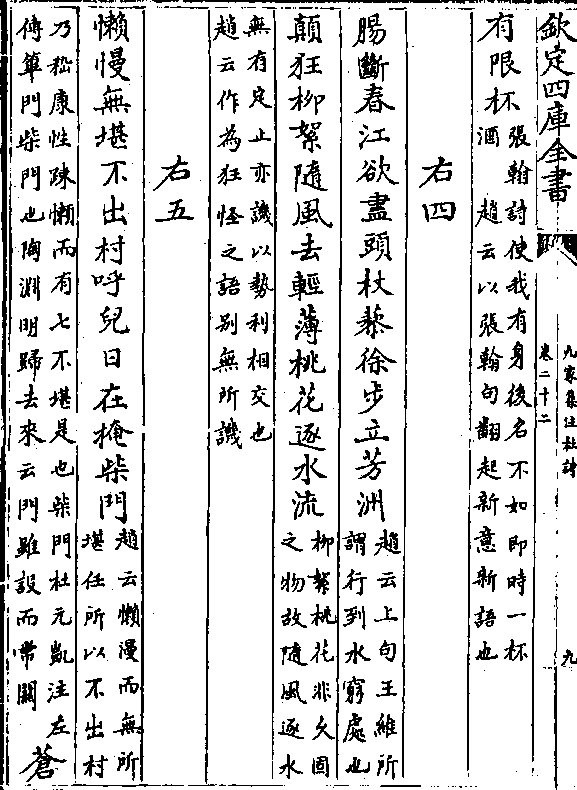 欽定四庫全書
九家集注杜詩
卷二十二
九
有限杯張翰詩使我有身後名不如即時一杯
酒　趙云以張翰句翻起新意新語也
右四
腸斷春江欲盡頭杖藜徐步立芳洲趙云上句王維所
謂行到水窮處也
顛狂柳絮隨風去輕薄桃花逐水流柳絮桃花非久固
之物故隨風逐水
無有定止亦譏以勢利相交也
趙云作為狂怪之語別無所譏
右五
懶慢無堪不出村呼兒日在掩柴門趙云懶漫而無所
堪任所以不出村
乃嵇康性踈懶而有七不堪是也柴門杜元凱注左
傳蓽門柴門也陶淵明歸去來云門雖設而常關
蒼